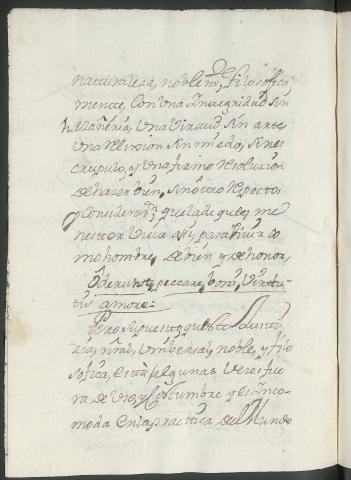 naturaleza, noblem.te, filosofica
mente, Con Una Integridad Sin
hazañeria, Una Virtud Sin arte
Una Religion Sin miedo, Sin es
crupulo, y Una firme Resolucion
de hazer bien, Sin otro Respecto,
y Considerad.n que la de que es me
nester Viuir asi, para Viuir co
mo hombre, de bien y de honor,
Oderunt peccare boni, Virtu
tis amore:
Pero supuesto que esto
natural, Vniversal, noble, y filo
sofica, està algunas veses fue
ra de Uso, y Costumbre y es Inco
moda en la practica del Mundo